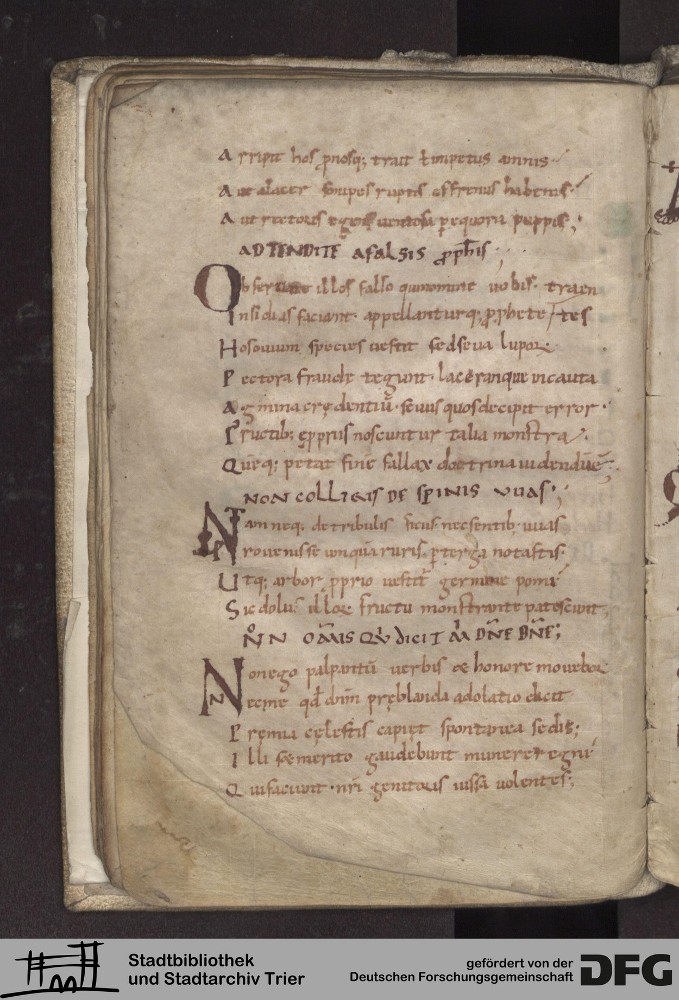 Arripit hos p̱nosq; trait ł impetus amnis
Aut alacer sonipes ruptis effrenus habenis
Aut rectoris egens ventosa ꝑ equora puppis;
ADTENDITE AFALSIS ꝓph̄is;
Observate illos falso qui nomine vobis traen
Insidias faciant appellanturq; ꝓphete /tes
Hos ovium species vestit sed seva lupoꝝ
Pectora fraudę tegunt lacerantque incauta
Agmina crędentiū sevus quos decipit error
Fructib; ep̱priis noscuntur talia monstra
Queq; petat fine fallax doctrina videndū ē
NON COLLIGIS DE SPINIS VVAS;
Nam neq; de tribulis ficus nec sentib; uuas
Provenisse umquā ruris ꝑ terga notastis
Utq; arbor ꝓprio vestit germine pomū
Sic dolus illoꝝ fructu monstrante patescunt
N̊N OM̄IS QVI DICIT M̄ DN̄E DN̄E;
Non ego palpantū verbis & honore moveboꝛ
Nec me qd̄ dnm̄ pręblanda adolatio dicit
Pręmia cęlestis capięt spontanea sedis;
Illi se merito gaudebunt munere regni
Qui faciunt nr̄i genitoris iussa volentes;
Stadtbibliothek
und Stadtarchiv Trier
gefördert von der
Deutschen Forschungsgemeinschaft
DFG